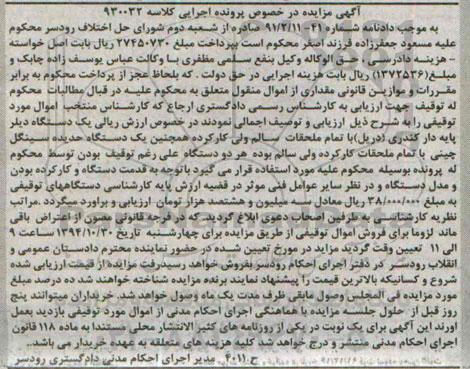 آگهی مزایده در خصوص پرونده اجرایی کلاسه ۹۳۰۰۳۲
به موجب دادنامه شماره ۴۱-۹۱/۲/۱۱ صادره از شعبه دوم شورای حل اختلاف رودسر محکوم
علیه مسعود جعفرزاده فرزند اصغر محکوم است بپرداخت مبلغ ۲۷۴۵۰۷۳۰ ریال بابت اصل خواسته
- هزینه دادرسی، حق الوکاله وکیل بنفع سلمی مظفری با وکالت عباس یوسف زاده چابک و
مبلغ (۱۳۷۲۵۳۶) ریال بابت هزینه اجرایی در حق دولت. که بلحاظ عجز از پرداخت محکوم به برابر
مقررات و موازین قانونی مقداری از اموال منقول متعلق به محکوم علیه در قبال مطالبات محکوم
له توقیف جهت ارزیابی به کارشناس رسمی دادگستری ارجاع که کارشناس منتخب اموال مورد
توقیفی را به شرح ذیل ارزیابی و توصیف اجمالی نمودند در خصوص ارزش ریالی یک دستگاه دیلر
پایه دار کندری (دریل) با تمام ملحقات سالم ولی کارکرده همچنین یک دستگاه حدیده سنگل
چینی با تمام ملحقات کارکرده ولی سالم بوده هر دو دستگاه علی رغم توقیف بودن توسط محکوم
له پرونده بوسیله محکوم علیه مورد استفاده قرار می گیرد با توجه به قدمت دستگاه و کارکرده بودن
و مدل دستگاه و در نظر سایر عوامل فنی موثر در قضیه ارزش پایه کارشناسی دستگاههای توقیفی
به مبلغ ۳۸/۰۰۰/۰۰۰ ریال معادل سه میلیون و هشتصد هزار تومان ارزیابی و براورد میگردد. مراتب
نظریه کارشناس به طرفین اصحاب دعوی ابلاغ گردید که در فرجه قانونی مصون از اعتراض باقی
ماند لزوما برای فروش اموال توقیفی از طریق مزایده برای چهارشنبه تاریخ ۱۳۹۴/۱۰/۳۰ ساعت ۹
الی ۱۱ تعیین وقت گردید مزاید در مورخ تعیین شده در حضور نماینده محترم دادستان عمومی و
انقلاب رودسر در دفتر اجرای احکام رودسر بفروش خواهد رسید رفت مزایده از قیمت ارزیابی شده
شروع و کسانیکه بالاترین قیمت را پیشنهاد نمایند برنده مزایده شناخته خواهند شد ده درصد مبلغ
مورد مزایده فی المجلس وصول مابقی ظرف مدت یک ماه وصول خواهد شد. خریداران میتوانند پنج
روز قبل از حلول جلسه مزایده با هماهنگی اجرای احکام مدنی از اموال مورد توقیفی بازدید بعمل
اورند این آگهی برای یک نوبت در یکی از روزنامه های کثیر الانتشار محلی مستندا به ماده ۱۱۸ قانون
اجرای احکام مدنی منتشر و درج خواهد شد کلیه هزینه های متعلقه به عهده خریدار می باشد.
ح ۴۰۱۱ مدیر اجرای احکام مدنی دادگستری رودسر